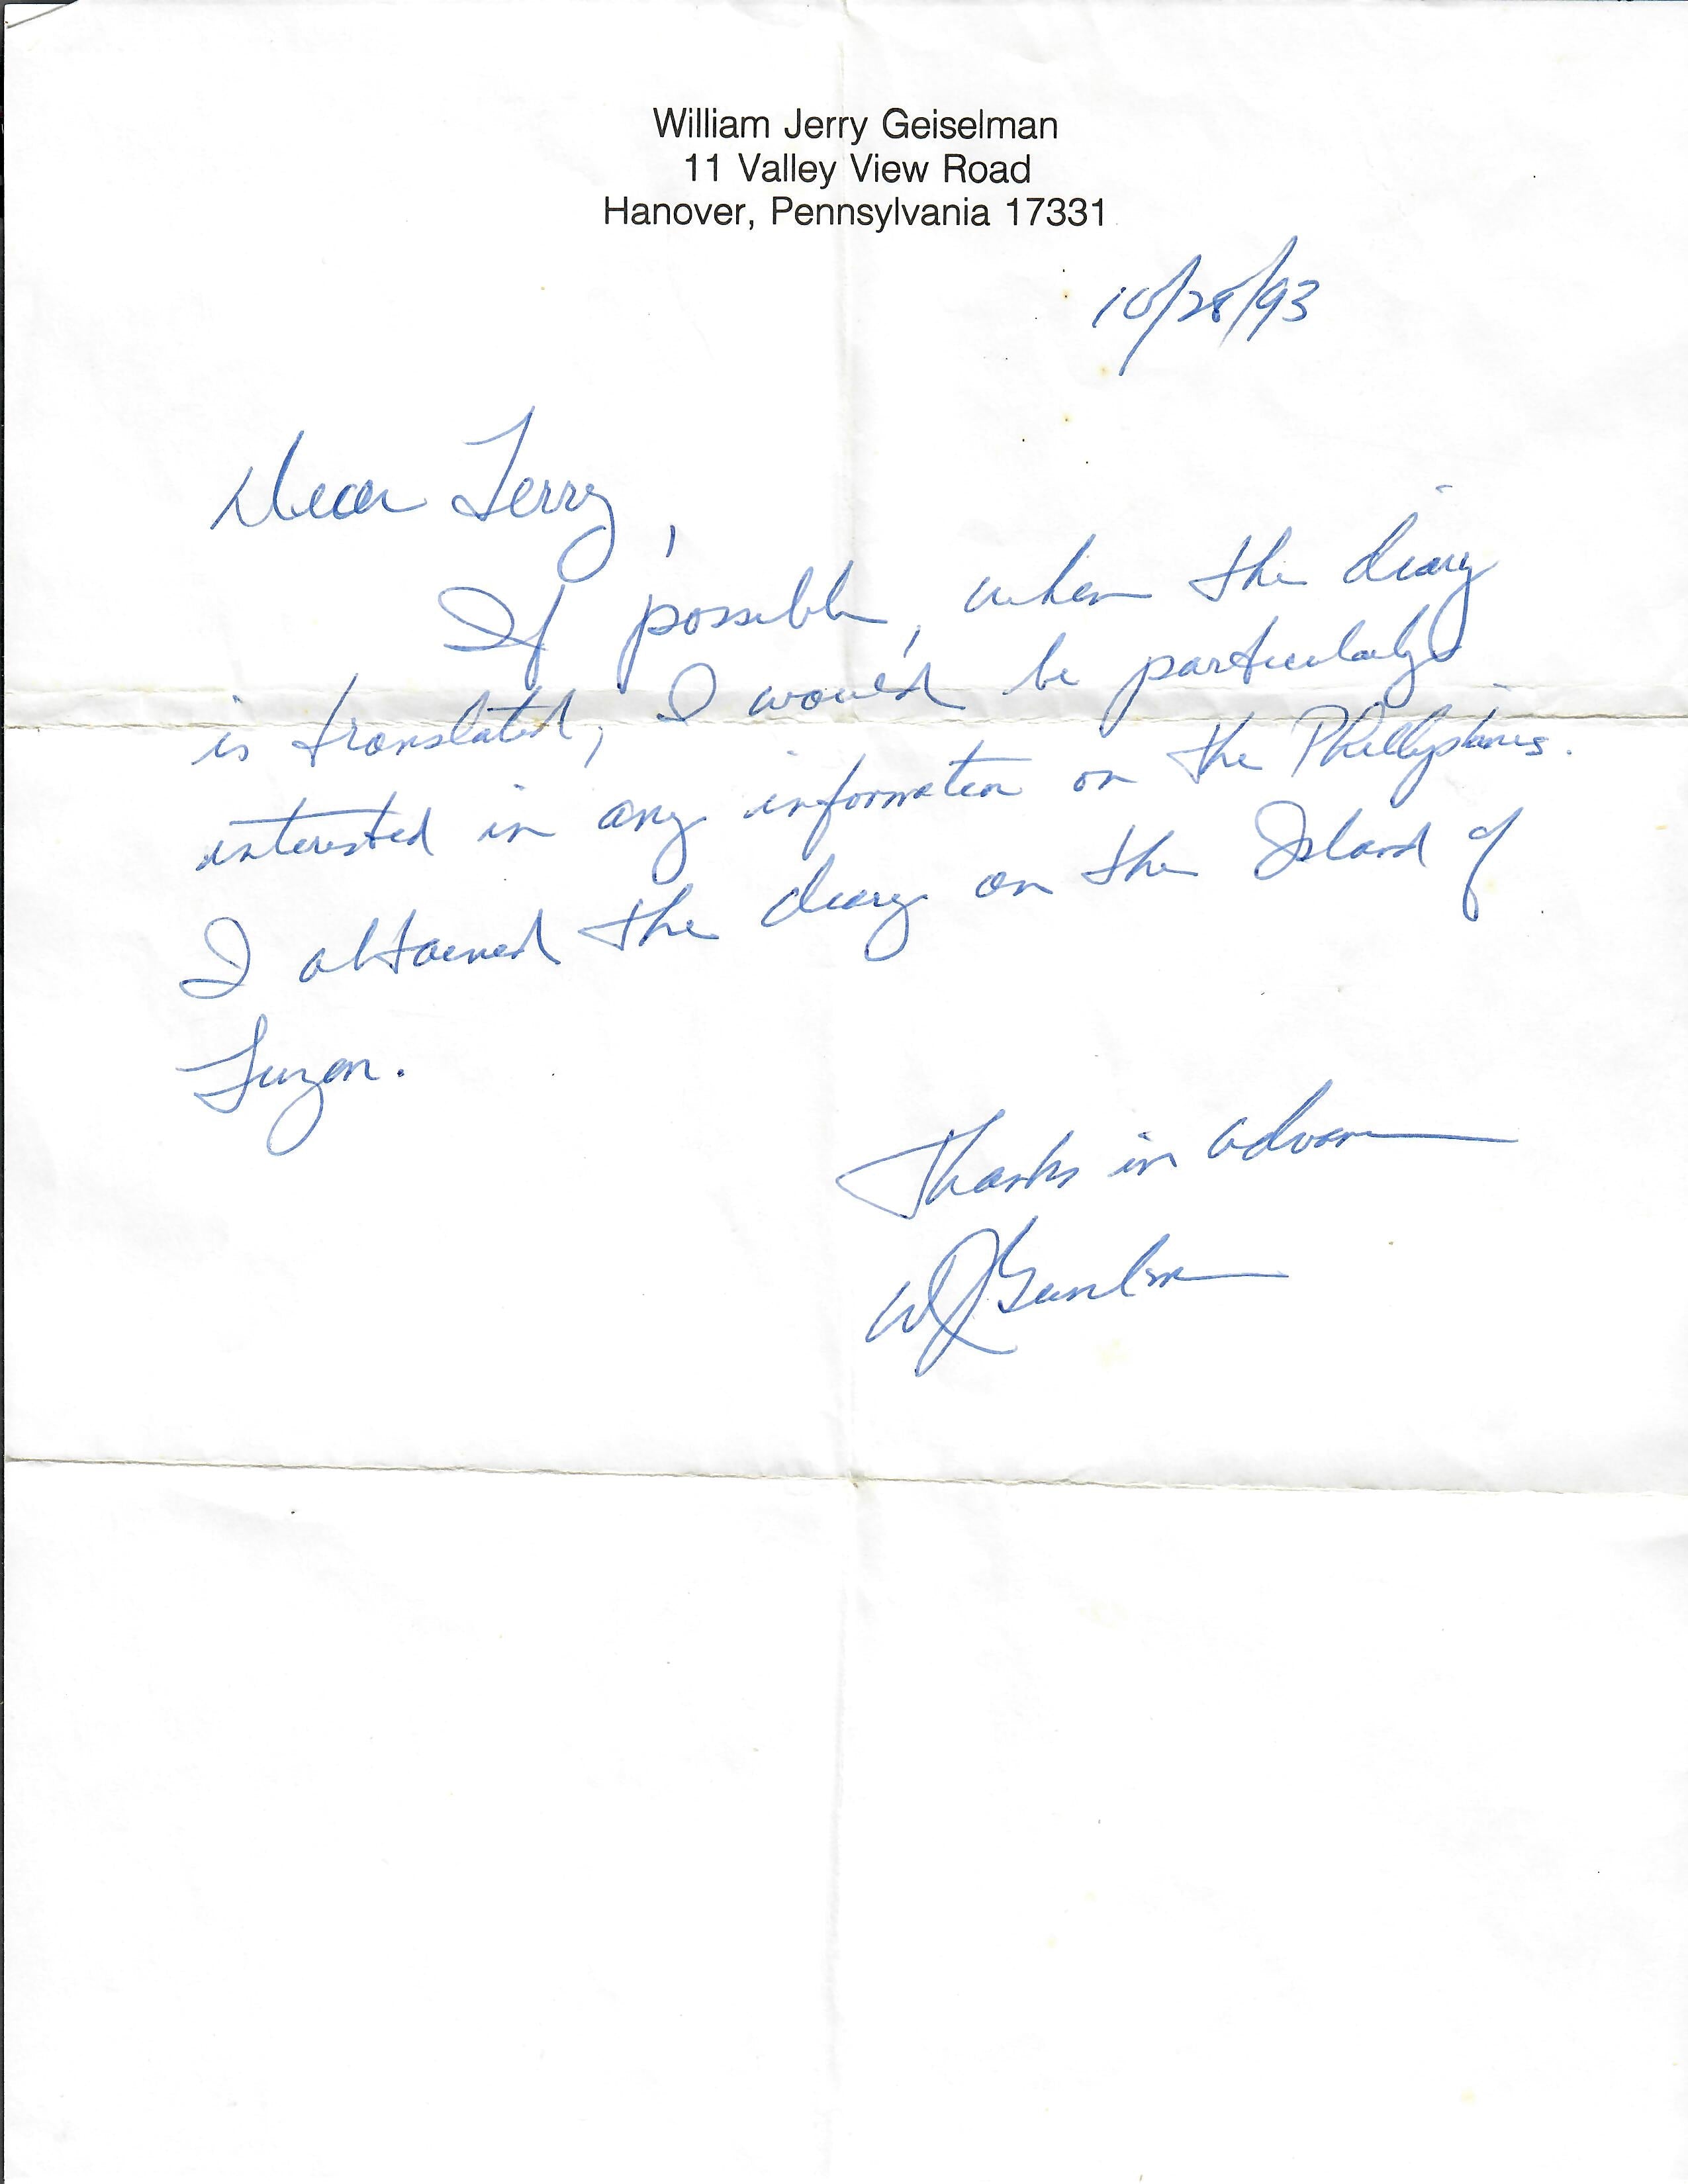 William Jerry Geiselman
11 Valley View Road
Hanover, Pennsylvania 17331
10/28/93
Dear Terry,
If possible, when the diary
is translated, I would be particularly
interested in any information on the Phillypines.
I obtained the diary on the Island of
Luzon.
Thanks in advance
WJGeiselman